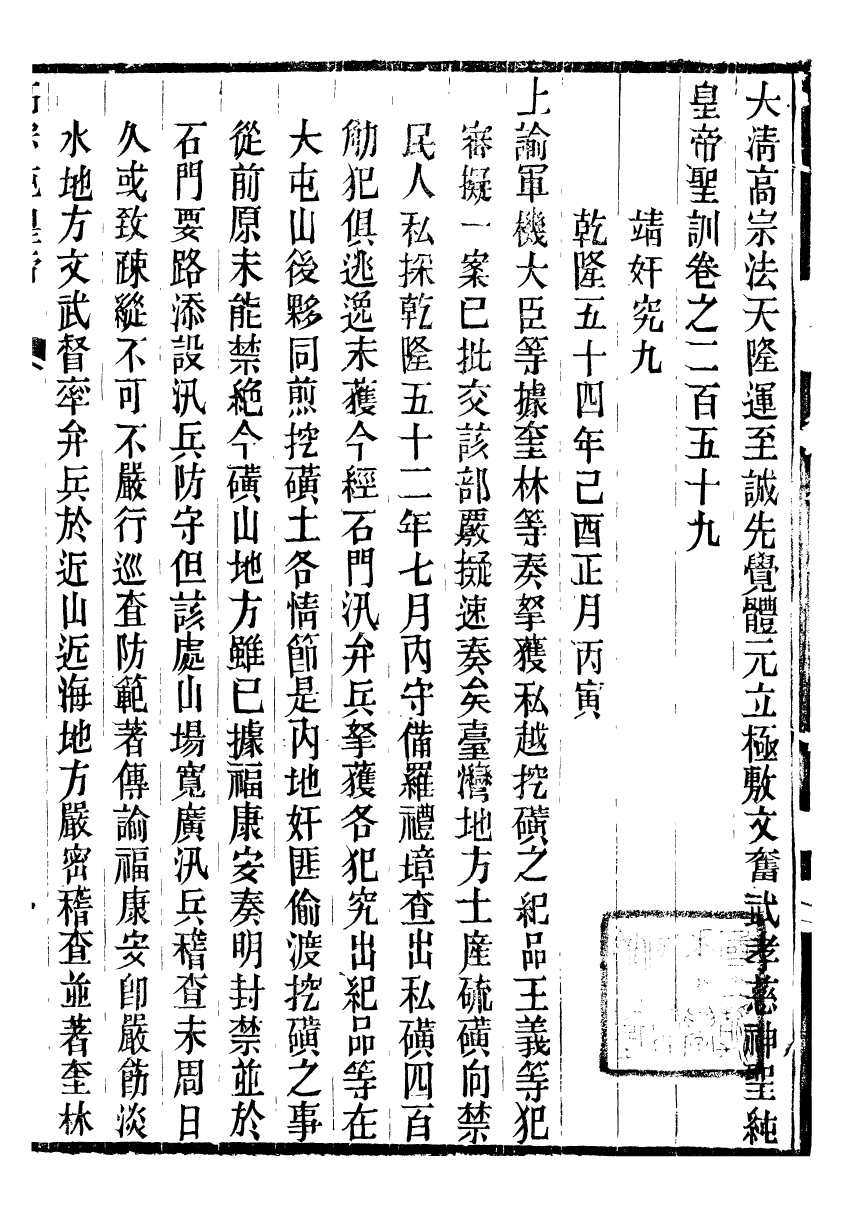 大淸高宗法天隆運至誠先覺體元立極敷文奮武孝慈神聖純
皇帝聖訓卷之二百五十九
靖奸宄九
乾隆五十四年己酉正月丙寅
上諭軍機大臣等據奎林等奏拏獲私越挖磺之紀品王義等犯
審擬一案已批交該部覈擬速奏矣臺灣地方土產硫磺向禁
民人私採乾隆五十二年七月內守備羅禮璋查出私磺四百
觔犯俱逃逸未獲今經石門汛弁兵拏獲各犯究出紀品等在
大屯山後夥同煎挖磺土各情節是內地奸匪偷渡挖磺之事
從前原未能禁絶今磺山地方雖已據福康安奏明封禁並於
石門要路添設汛兵防守但該處山場寬廣汛兵稽查未周日
久或致疎縱不可不嚴行巡查防範著傳諭福康安卽嚴飭淡
水地方文武督率弁兵於近山近海地方嚴密稽查並著奎林
高宗純皇帝